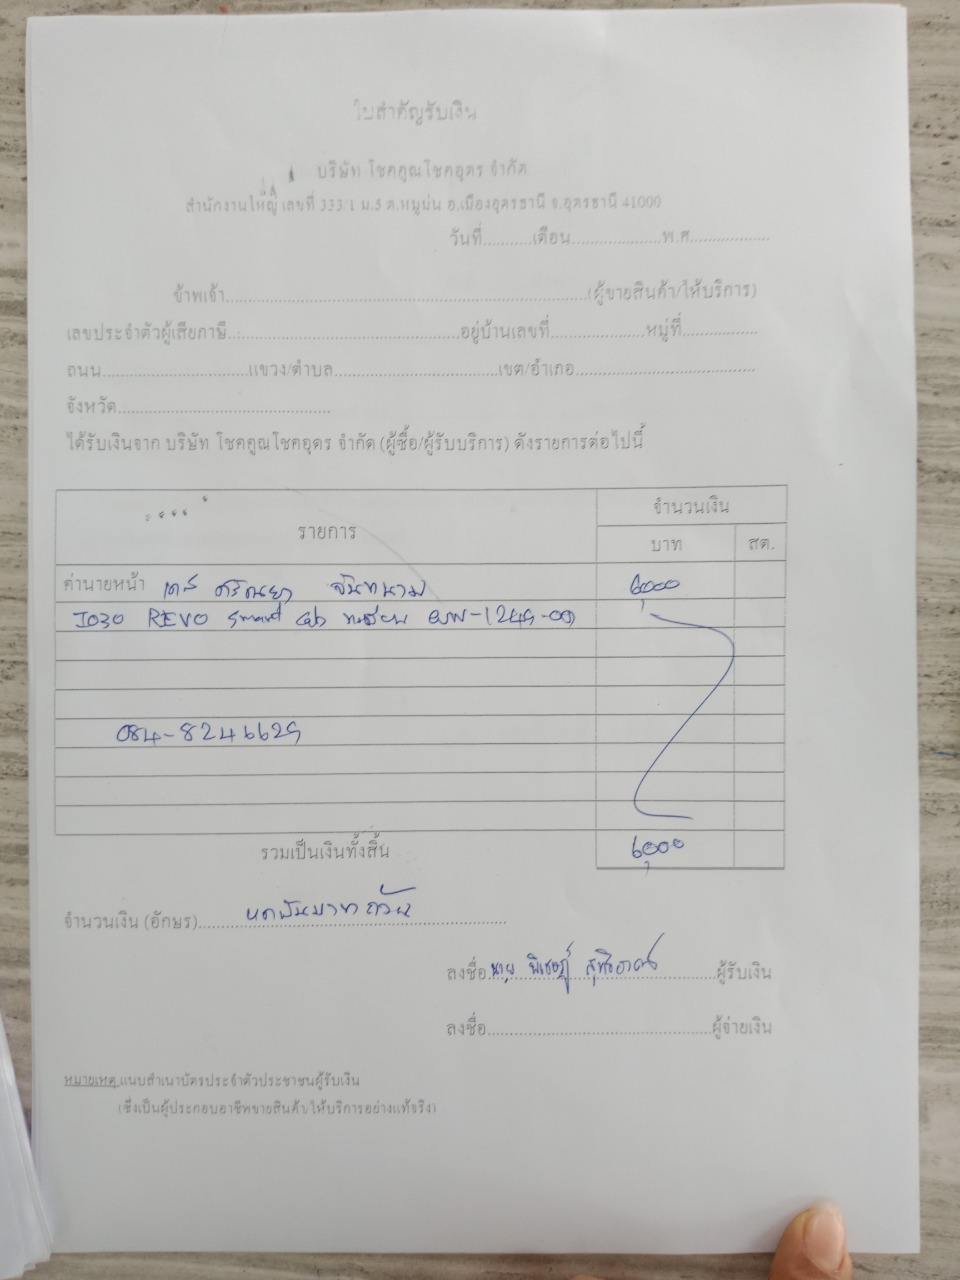 ใบสำคัญรับเงิน
บริษัท โชคคูณโชคอุดร จำกัด
สำนักงานใหญ่ เลขที่ 333/1 ม.5 ต.หมูม่น อ.เมืองอุดรธานี จ.อุดรธานี 41000
วันที่..........เดือน....................พ.ศ..................
ข้าพเจ้า................................................................................(ผู้ขายสินค้า/ให้บริการ)
เลขประจำตัวผู้เสียภาษี..:................................................อยู่บ้านเลขที่.....................หมู่ที่.................
ถนน................................แขวง/ตำบล....................................เขต/อำเภอ........................................
จังหวัด...............................................
ได้รับเงินจาก บริษัท โชคคูณโชคอุดร จำกัด (ผู้ซื้อ/ผู้รับบริการ) ดังรายการต่อไปนี้
รายการ จำนวนเงิน
บาท สต.
ค่านายหน้า เคส ศรัณยา จันทนาม 6,000
J030 REVO Smart Cab ทะเบียน
084-8246629
รวมเป็นเงินทั้งสิ้น 6,000
จำนวนเงิน (อักษร) หกพันบาทถ้วน
ลงชื่อ นาย พิเชษฐ์ ผู้รับเงิน
ลงชื่อ..................................................ผู้จ่ายเงิน
หมายเหตุ แนบสำเนาบัตรประจำตัวประชาชนผู้รับเงิน
(ซึ่งเป็นผู้ประกอบอาชีพขายสินค้า/ให้บริการอย่างแท้จริง)